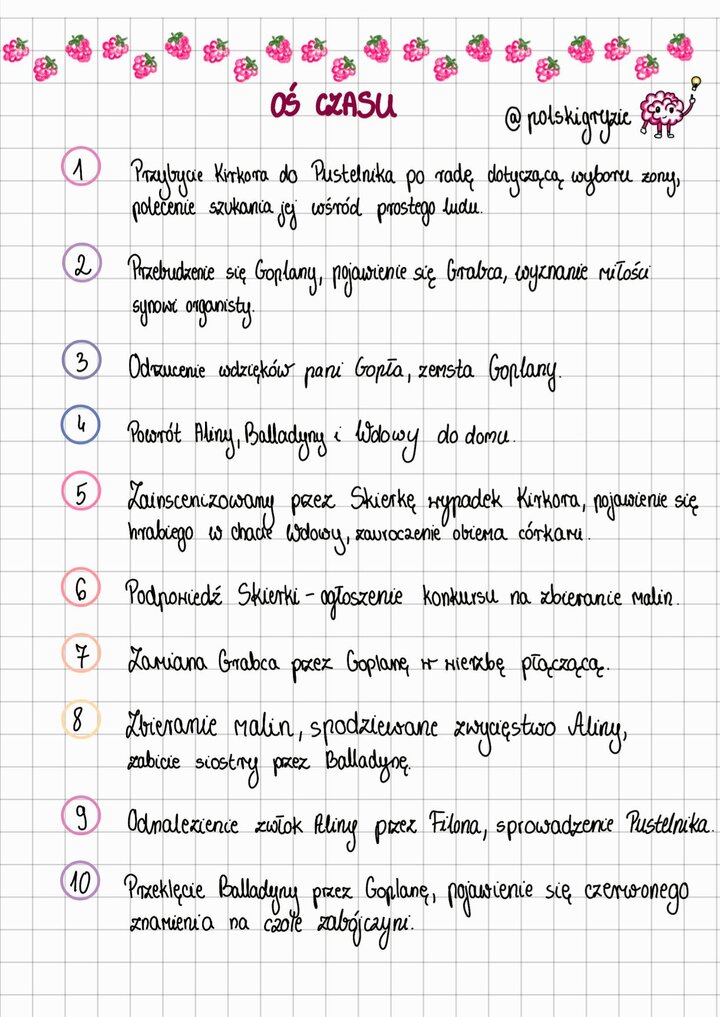 OŚ CZASU
@polskigryzie
1
Przybycie Kirkora do Pustelnika po radę dotyczącą wyboru żony,
polecenie szukania jej wśród prostego ludu.
2
Przebudzenie się Goplany, pojawienie się Grabca, wyznanie miłości
synowi organisty.
3
Odrzucenie wdzięków pani Gopła, zemsta Goplany.
4
Powrót Aliny, Balladyny i Wdowy do domu.
5
Zainscenizowany przez Skierkę wypadek Kirkora, pojawienie się
hrabiego w chacie Wdowy, zauroczenie obiema córkami.
6
Podpowiedź Skierki - ogłoszenie konkursu na zbieranie malin.
7
Zamiana Grabca przez Goplanę w wierzbę płaczącą.
8
Zbieranie malin, spodziewane zwycięstwo Aliny,
zabicie siostry przez Balladynę.
9
Odnalezienie zwłok Aliny przez Filona, sprowadzenie Pustelnika.
10
Przeklęcie Balladyny przez Goplanę, pojawienie się czerwonego
znamienia na czole zabójczyni.